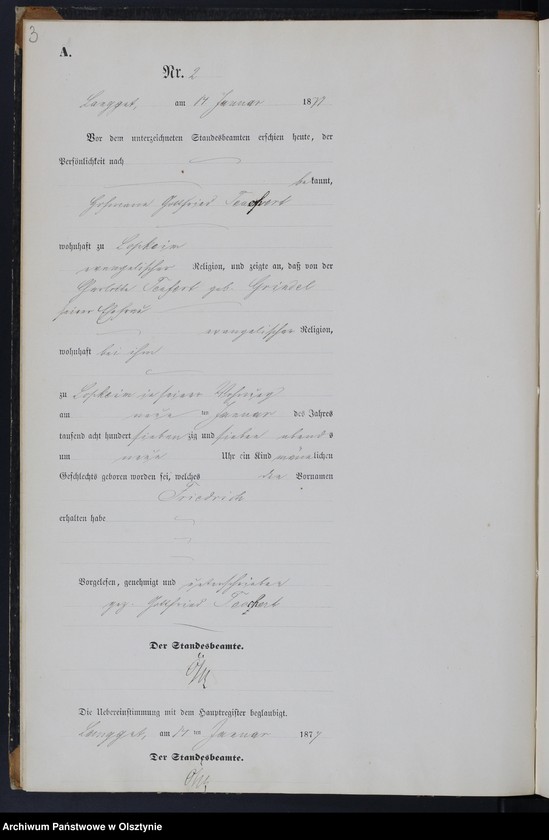 3
A.
Nr. 2
am 14 Januar 1877
Vor dem unterzeichneten Standesbeamten erschien heute, der
Persönlichkeit nach
bekannt,
Gottfried
wohnhaft zu
evangelischer Religion, und zeigte an, daß von der
geb.
seiner Ehefrau
evangelischer Religion,
wohnhaft bei ihm
zu in seiner Wohnung
am neun ten Januar des Jahres
tausend acht hundert siebenzig und sieben abends
um neun Uhr ein Kind männlichen
Geschlechts geboren worden sei, welches die Vornamen
Friedrich
erhalten habe
Vorgelesen, genehmigt und unterschrieben
gez. Gottfried
Der Standesbeamte.
Die Uebereinstimmung mit dem Hauptregister beglaubigt.
am 14 ten Januar 1877
Der Standesbeamte.
Archiwum Państwowe w Olsztynie